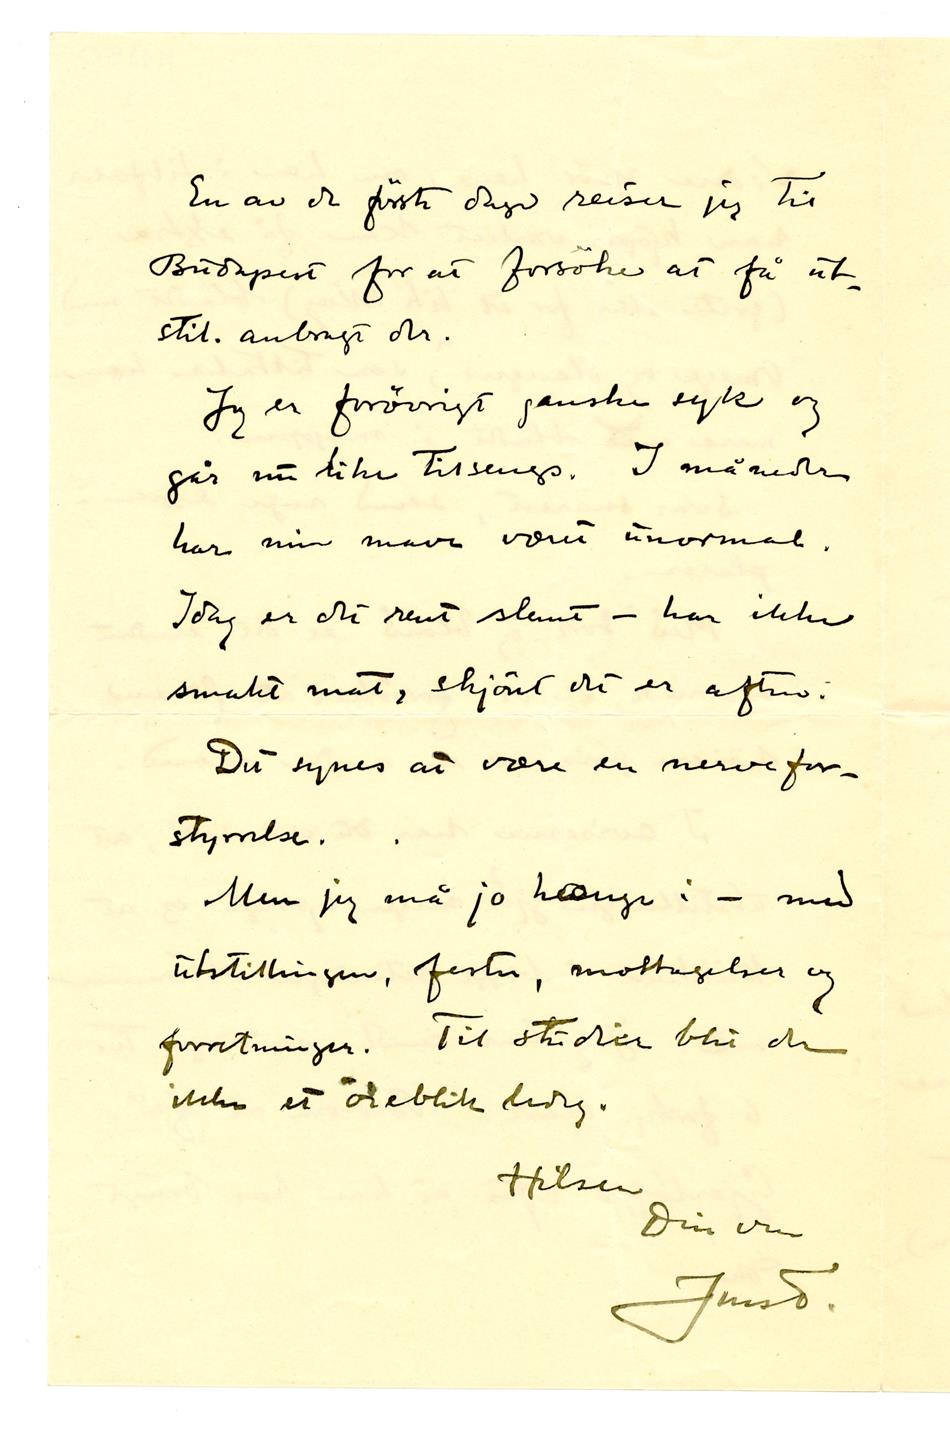 En av de förste dage reiser jeg til
Budapest for at forsöke at få ut-
stil. anbragt der.
Jeg er forövrigt ganske syk og
går nu like tilsengs. I måneder
har min mave været unormal.
Idag er det rent slemt – har ikke
smakt mat, skjönt det er aften.
Det synes at være en nervefor-
styrrelse.
Men jeg må jo hænge i – med
utstillingen, fester, mottagelser og
forretninger. Til studier bli der
ikke et öieblik ledig.
Hilsen
Din ven